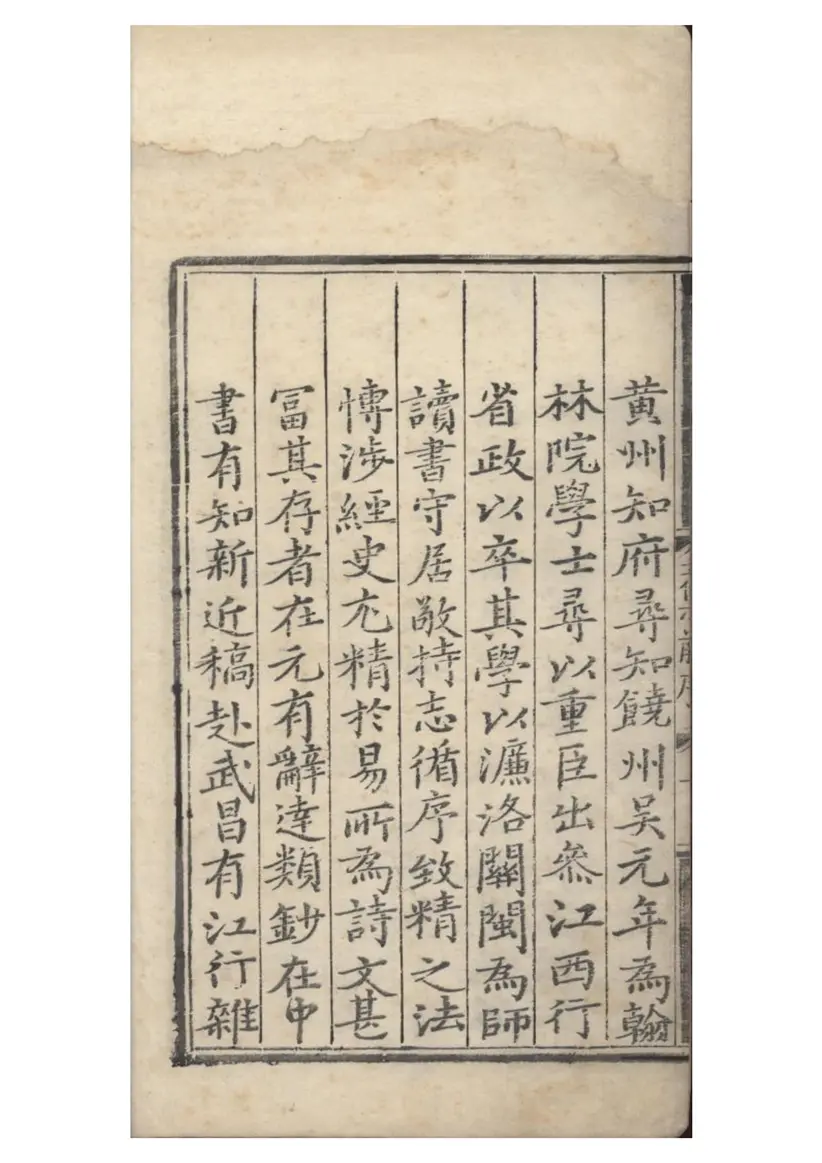 黄州知府尋知饒州吴元年為翰
林院學士尋以重臣出叅江西行
省政以卒其學以濂洛關閩為師
讀書守居敬持志循序致精之法
博渉經史尢精於易所為詩文甚
冨其存者在元有辭達類鈔在中
書有知新近稿赴武昌有江行雜